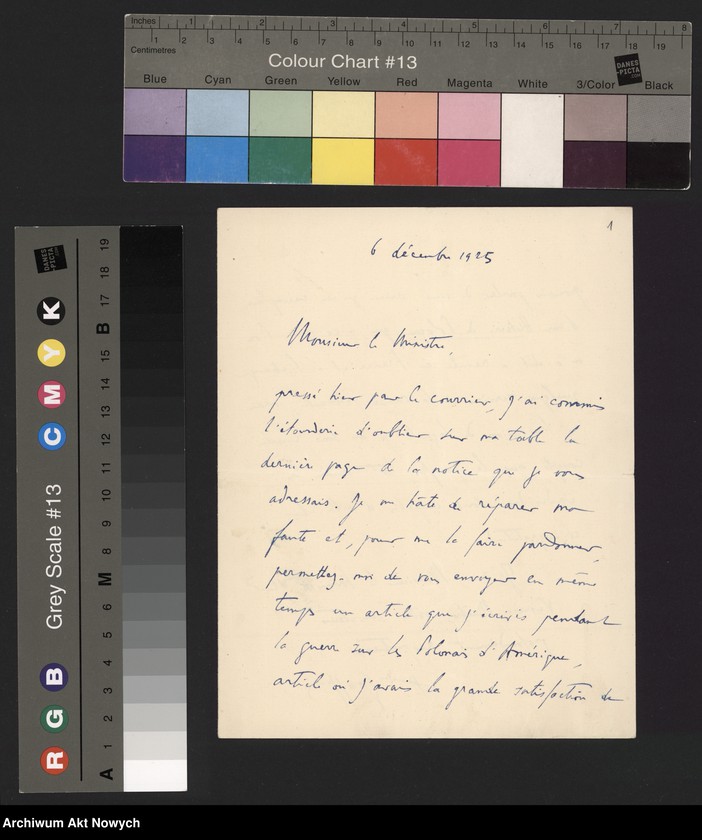 Inches 1 2 3 4 5 6 7 8
Centimetres 1 2 3 4 5 6 7 8 9 10 11 12 13 14 15 16 17 18 19
Colour Chart #13
DANES
-PICTA
.COM
Blue Cyan Green Yellow Red Magenta White 3/Color Black
Grey Scale #13
R G B C M Y K
DANES
-PICTA
.COM
A 1 2 3 4 5 6 M 8 9 10 11 12 13 14 15 B 17 18 19
1
6 décembre 1925
Monsieur le Ministre,
pressé hier par le courrier, j'ai commis
l'étourderie d'oublier sur ma table la
dernière page de la notice que je vous
adressais. Je me hâte de réparer ma
faute et, pour me la faire pardonner,
permettez-moi de vous envoyer en même
temps un article que j'écrivis pendant
la guerre sur les Polonais d'Amérique,
article où j'avais la grande satisfaction de
Archiwum Akt Nowych